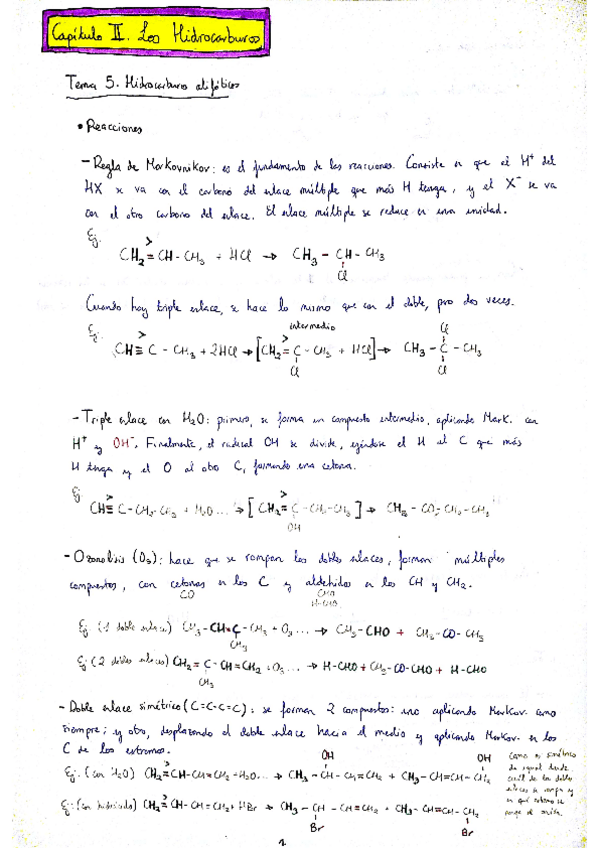 Capítulo II. Los Hidrocarburos
Tema 5. Hidrocarburo alifáticos
• Reacciones
- Regla de Markovnikov: es el fundamento de las reacciones. Consiste en que el H⁺ del
HX se va con el carbono del enlace múltiple que más H tenga, y el X⁻ se va
con el otro carbono del enlace. El enlace múltiple se reduce en una unidad.
Ej.
CH₂=CH-CH₃ + HCl → CH₃ - CH - CH₃
Cl
Cuando hay triple enlace, se hace lo mismo que con el doble, pero dos veces.
Ej. intermedio Cl
CH≡C - CH₃ + 2HCl → [CH₂=C - CH₃ + HCl] → CH₃ - C - CH₃
Cl Cl
- Triple enlace con H₂O: primero, se forma un compuesto intermedio, aplicando Mark. con
H⁺ y OH⁻. Finalmente, el radical OH se divide, yéndose el H al C que más
H tenga y el O al otro C, formando una cetona.
Ej
CH≡C-CH₂-CH₃ + H₂O... → [CH₂=C-CH₂-CH₃] → CH₃-CO-CH₂-CH₃
OH
- Ozonolisis (O₃): hace que se rompan los dobles enlaces, forman múltiples
compuestos, con cetonas en los C y aldehidos en los CH y CH₂.
CO CHO
H-CHO
Ej (1 doble enlace) CH₃-CH=C-CH₃ + O₃ ... → CH₃-CHO + CH₃-CO-CH₃
CH₃
Ej (2 dobles enlaces) CH₂=C-CH=CH₂ + O₃... → H-CHO + CH₃-CO-CHO + H-CHO
CH₃
- Doble enlace simétrico (C=C-C=C): se forman 2 compuestos: uno aplicando Markov. como
siempre; y otro, desplazando el doble enlace hacia el medio y aplicando Markov. en los
C de los extremos.
OH OH
Ej. (con H₂O) CH₂=CH-CH=CH₂ + H₂O... → CH₃-CH-CH=CH₂ + CH₃-CH=CH-CH₂
Ej: (con hidrácido) CH₂=CH-CH=CH₂ + HBr → CH₃-CH-CH=CH₂ + CH₃-CH=CH-CH₂
Br Br
Como es simétrico
da igual desde
cuál de los dobles
enlaces se rompa y
en qué extremo se
1